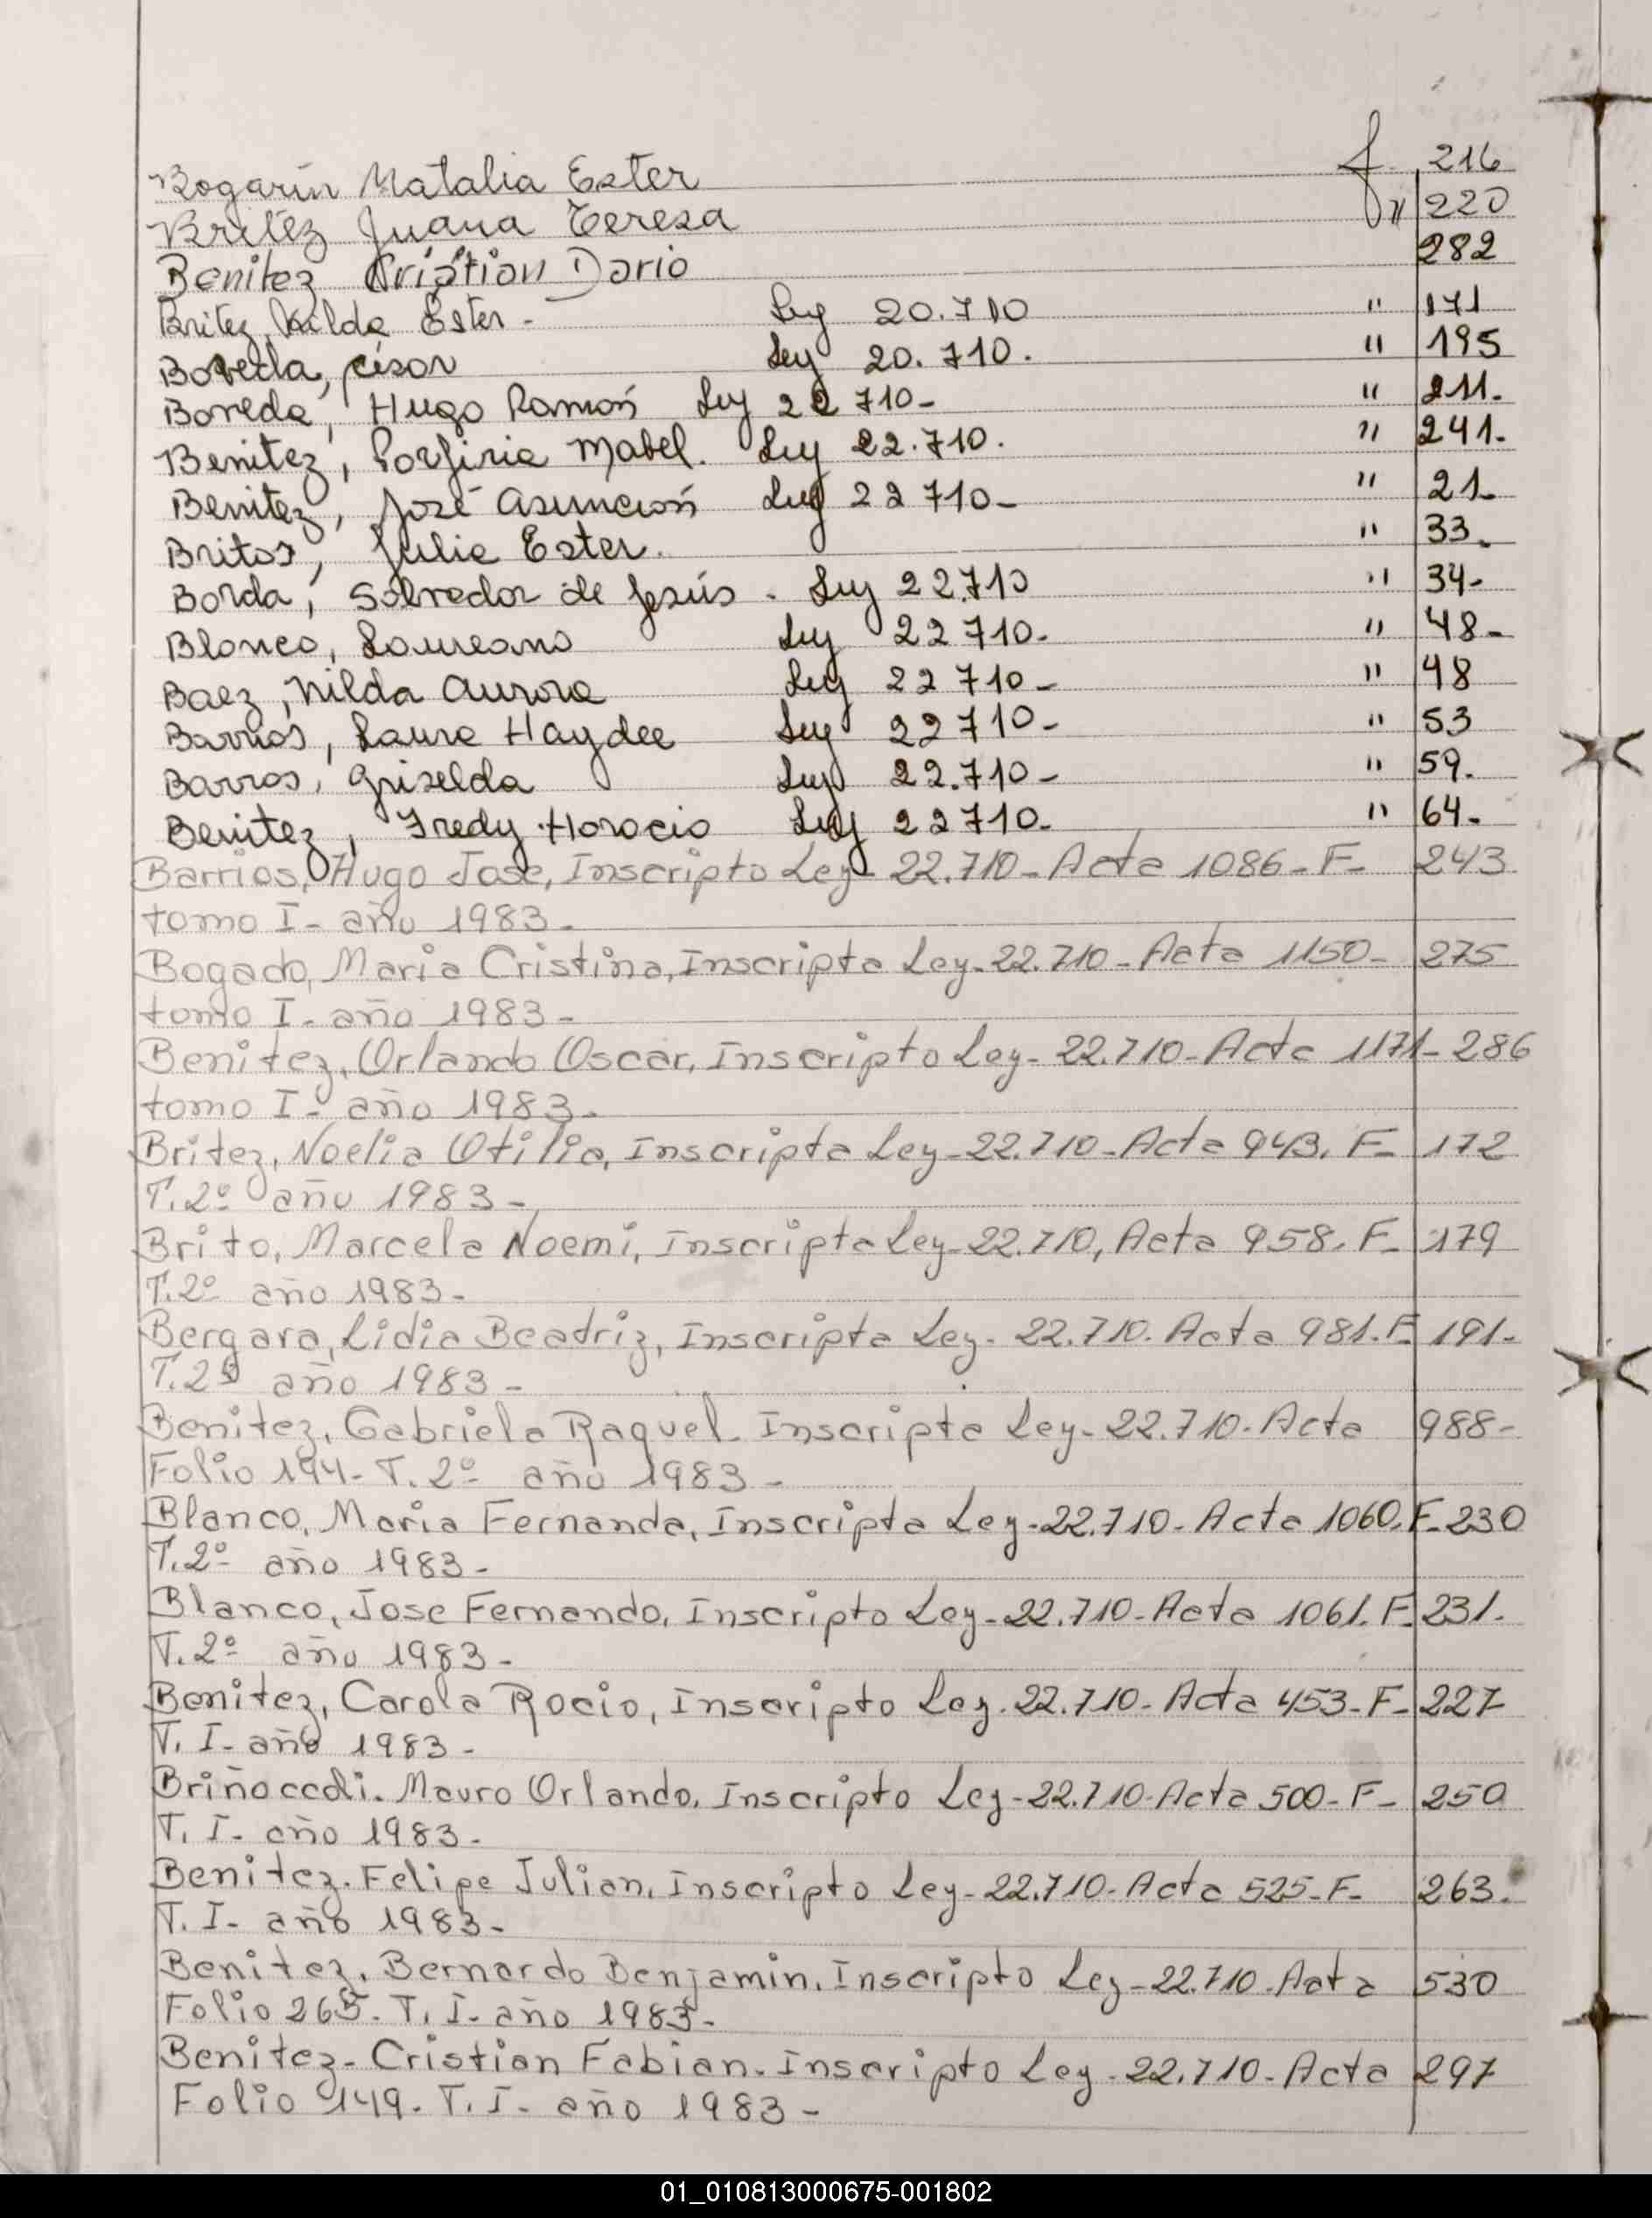 Bogarin Natalia Ester f. 216
Britez Juana Teresa " 220
Benitez Cristian Dario 282
Britez, Nilda Ester - Ley 20.710 " 171
Boveda, César Ley 20.710. " 195
Boveda, Hugo Ramón Ley 22 710- " 211-
Benitez, Porfiria Mabel. Ley 22.710. " 241-
Benitez, José Asunción Ley 22 710- " 21-
Britos, Julia Ester. " 33-
Borda, Salvador de Jesús - Ley 22.710 " 34-
Blanco, Laureano Ley 22 710- " 48-
Baez, Nilda Aurora Ley 22 710- " 48
Barrios, Laura Haydee Ley 22 710- " 53
Barros, Griselda Ley 22.710- " 59.
Benitez, Fredy Horacio Ley 22 710- " 64-
Barrios, Hugo Jose, Inscripto Ley- 22.710- Acta 1086- F- 243
tomo I- año 1983-
Bogado, Maria Cristina, Inscripta Ley- 22.710- Acta 1150- 275
tomo I- año 1983-
Benitez, Orlando Oscar, Inscripto Ley- 22.710- Acta 1171- 286
tomo I- año 1983-
Britez, Noelia Otilia, Inscripta Ley- 22.710- Acta 943. F- 172
T. 2º año 1983-
Brito, Marcela Noemi, Inscripta Ley- 22.710, Acta 958. F- 179
T. 2º año 1983-
Bergara, Lidia Beatriz, Inscripta Ley- 22.710. Acta 981. F. 191-
T. 2º año 1983-
Benitez, Gabriela Raquel- Inscripta Ley- 22.710- Acta 988-
Folio 194- T. 2º año 1983-
Blanco, Maria Fernanda, Inscripta Ley- 22.710- Acta 1060. F- 230
T. 2º año 1983-
Blanco, Jose Fernando, Inscripto Ley- 22.710- Acta 1061. F. 231-
T. 2º año 1983-
Benitez, Carola Rocio, Inscripto Ley. 22.710- Acta 453- F- 227
T. I- año 1983-
Briñoccoli. Mauro Orlando, Inscripto Ley- 22.710- Acta 500- F- 250
T. I- año 1983-
Benitez. Felipe Julian, Inscripto Ley- 22.710- Acta 525- F- 263.
T. I- año 1983-
Benitez, Bernardo Benjamin. Inscripto Ley- 22.710- Acta 530
Folio 265- T. I- año 1983-
Benitez- Cristian Fabian- Inscripto Ley- 22.710- Acta 297
Folio 149- T. I- año 1983-
01_010813000675-001802